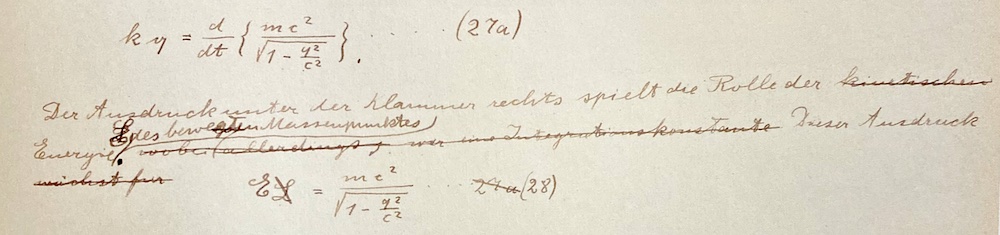 k q = d/dt { mc² / √(1 - q²/c²) } . . . . . (27a)
Der Ausdruck unter der Klammer rechts spielt die Rolle der kinetischen
E des bewegten Massenpunktes
Energie. wobei (allerdings nur eine Integrationskonstante Dieser Ausdruck
wächst für
E L = mc² / √(1 - q²/c²) . . . 27a (28)